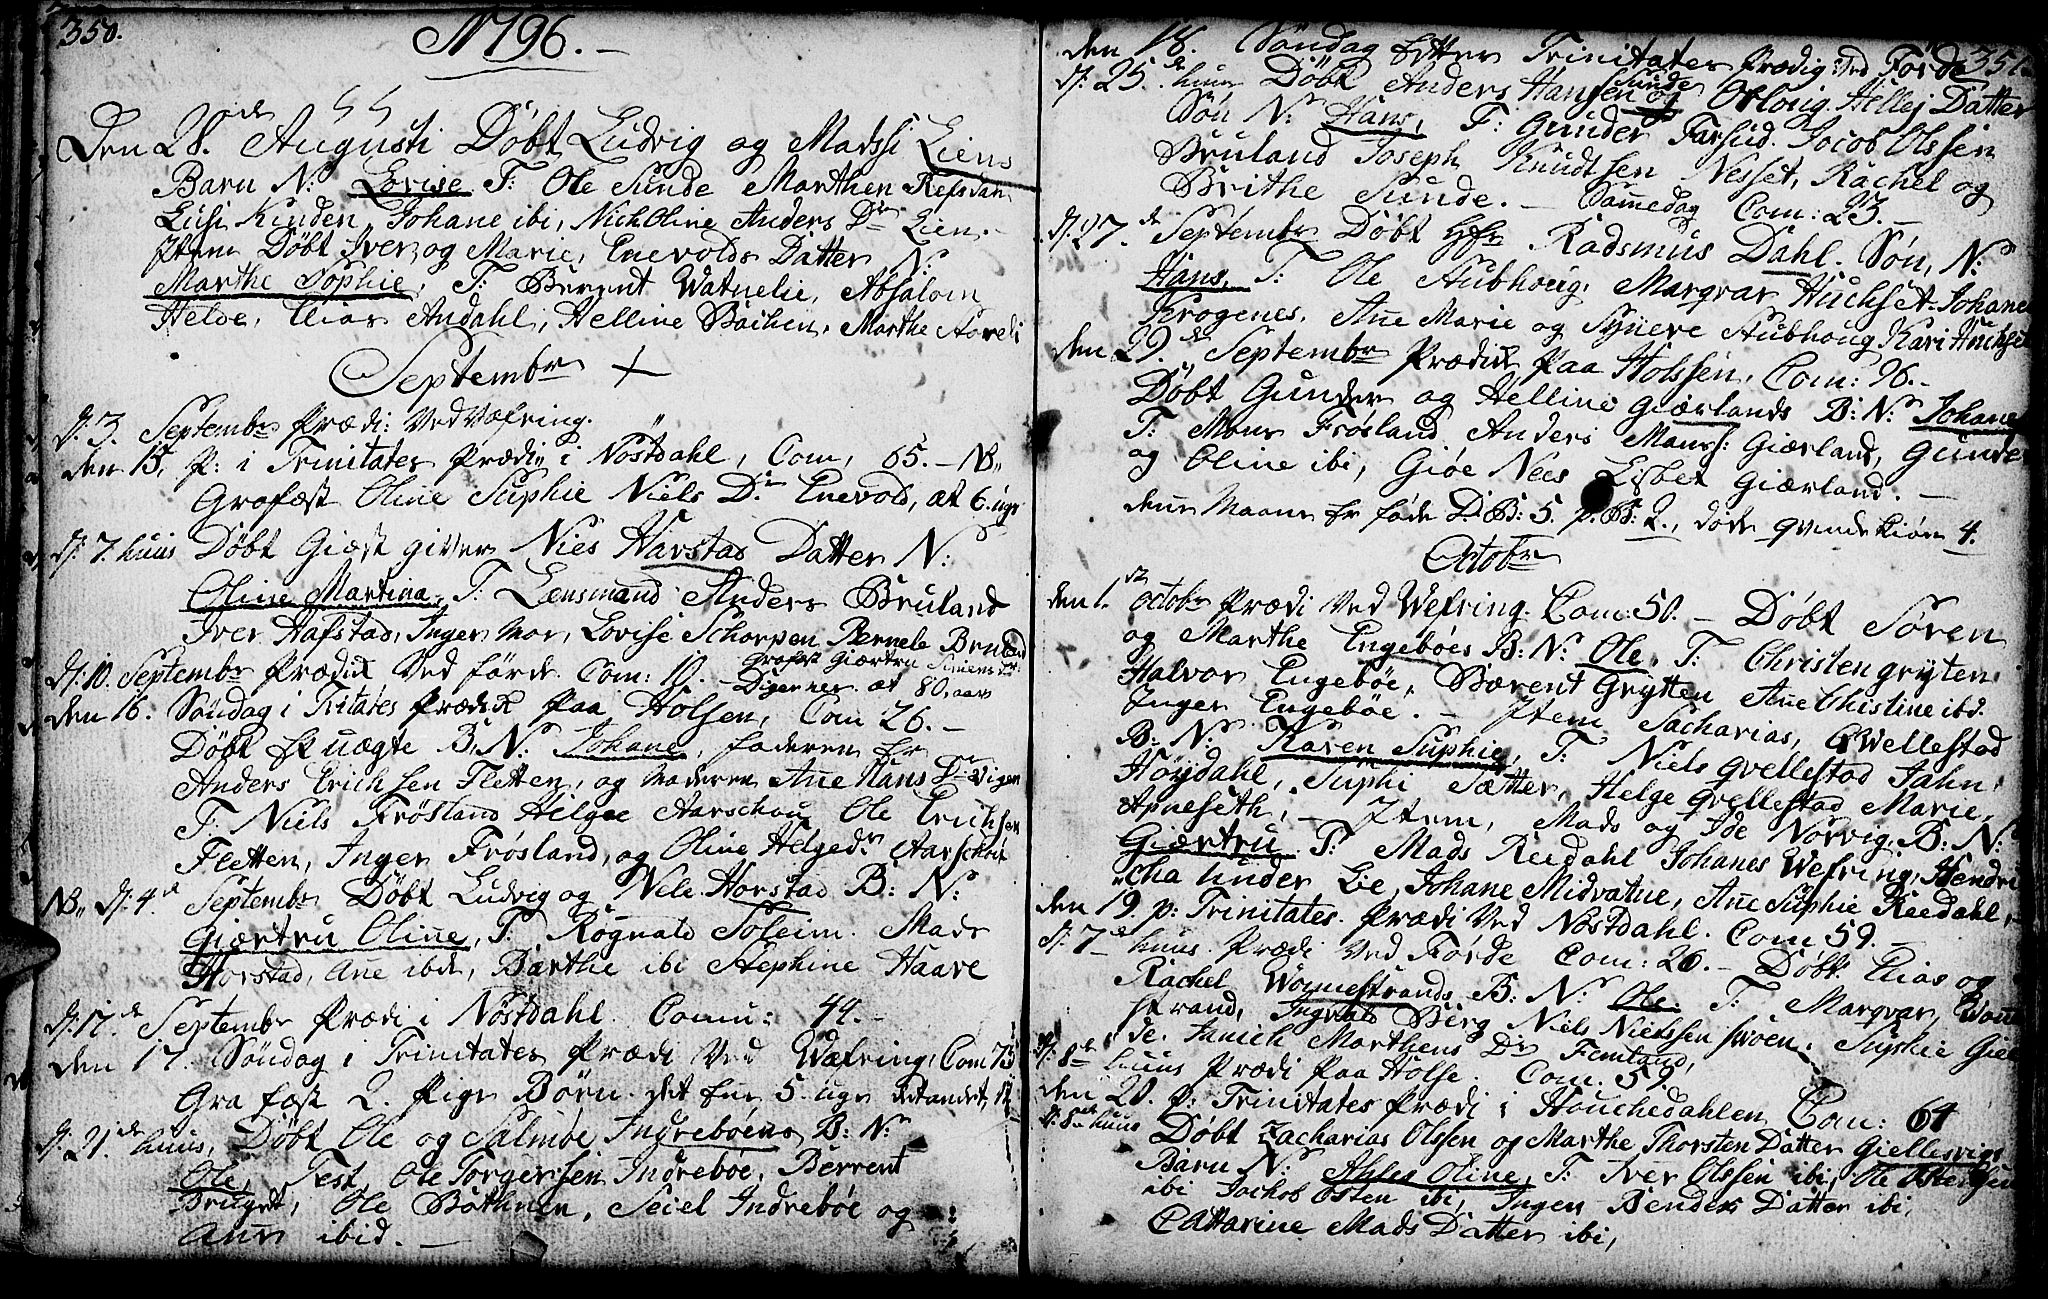 350.
1796.
Den 28de Augusti Döbt Ludvig og Madssi Liens
Barn N: Lovise T: Ole Sunde Marthen Refsdan
Lusi Kinden, Johane ibi, Nich Oline Anders Dr Lien.
Item Döbt Iver og Marie, Enevolds Datter N:
Marthe Sophie, T: Berent Watnelie, Absalom
Helde, Elias Andahl, Helline Backen, Marthe
Septembr
d: 3. Septembr Prædi: Ved Wefring.
den 15, p: i Trinitates Prædi i Nöstdahl, Com, 65. - NB,,
Grafæst Oline Suphie Niels Dr Enevold, æt 6. ugr
d: 7. huus Döbt Giæstgiver Nies Havstad Datter N:
Oline Martina, T: Lensmand Anders Bruland
Iver Hafstad, Inger Mor, Lovise Schorpen Bernele Bruland
d: 10. Septembr Prædi Ved förde Com: 10. - Grafæst Giærtru
Digernes æt 80, aar
den 16. Söndag i Tritates Prædi Paa Holsen, Com 26. -
Döbt Et uægte B. N: Johane, faderen Er
Anders Erichsen Fletten, og Moderen Ane Hans Dr Digern
T: Niels Frösland Helge Aarschou Ole Erichsen
Fletten, Inger Frösland, og Oline Helge dr Aarschou
NB,, d: 4de Septembr Döbt Ludvig og Nele Horstad B: N:
Giærtru Oline, T: Rögnald Soleim Mads
Horstad, Ane ibid, Barthe ibi Stephine Haave
d: 17de Septembr Prædi i Nöstdahl. Comu: 44. -
den 17. Söndag i Trinitates Prædi Ved Wæfring, Com 73
Grafæst 2. Pige Börn. det Ene 5. ugr det andet,
d: 21de huus, Döbt Ole og Salmöe Indreböens B: Nr
Ole, Test, Ole Torgersen Indreböe, Berrent
Bruget, Ole Böthnen, Seiel Indreböe og
Ane ibid. -
351.
den 18. Söndag Efter Trinitates Prædig: Ved Förde
d: 25de huus Döbt Anders Hansen Sunde og Orloug Hellej Datter
Sön N: Hans, T: Gunder Farsud. Jocob Olssen
Bruland Joseph Knudtsen Nesset, Rachel og
Brithe Sunde. - Samedag Com: 23. -
d: 27de Septembr Döbt Radsmus Dahl. Sön, N:
Hans, T: Ole Stubhoug, Margvar Huchset Johanes
Krogenes, Ane Marie og Synere Stubhoug Kari Huchset
den 29de Septembr Prædi Paa Holssen, Com: 96. -
Döbt Gunder og Helline Giærlands B: Nr Johane
T: Mons Frösland Anders Mons: Giærland, Gunder
og Oline ibi, Giöe Nees Lisbet Giærland. -
denne Maane Er föde D: B: 5. p. B: 2., döde qvindekiön 4.
Octobr
den 1. octobr Prædi Ved Wefring. Com: 50. - Döbt Sören
og Marthe Engeböes B: N: Ole, T: Christen gryten,
Halvor Engeböe, Bærent Grytten Ane Christine ibd.
Inger Engeböe. - Item Sacharias, Qwellestad
B: N: Karen Suphie, T: Niels qvellestad Jahn
Höydahl, Suphi Sætter, Helge qvellestad Marie
Apneseth, - Item, Mads og Ide Norvig, B: N:
Giærtru T: Mads Reedahl Johanes Wefring, Hendri
cha under Lie, Johane Midvatne, Ane Suphie Reedahl,
den 19 p: Trinitates. Prædi Ved Nöstdahl. Com 59. -
d: 7de huus. Prædi Ved Förde Com: 26. - Döbt Elias og
Rachel Woyestrands B: N: Ole T: Margvar
strand, Ingvald Berg Niels Nielssen
de. Janich Marthens Dr Femland,
d: 8de huus Prædi Paa Holse. Com. 59.
den 20. p: Trinitates Prædi i Houchedahlen Com: 64
d: 8de huus
Döbt Zacharias Olssen og Marthe Thorsten Datter Giellesvigs
Barn N: Ahles Oline, T: Iver Olssen ibi, Ole
ibi Jachob Osten ibi, Inger Benders Datter ibi,
Cattarine Mads Datter ibi,